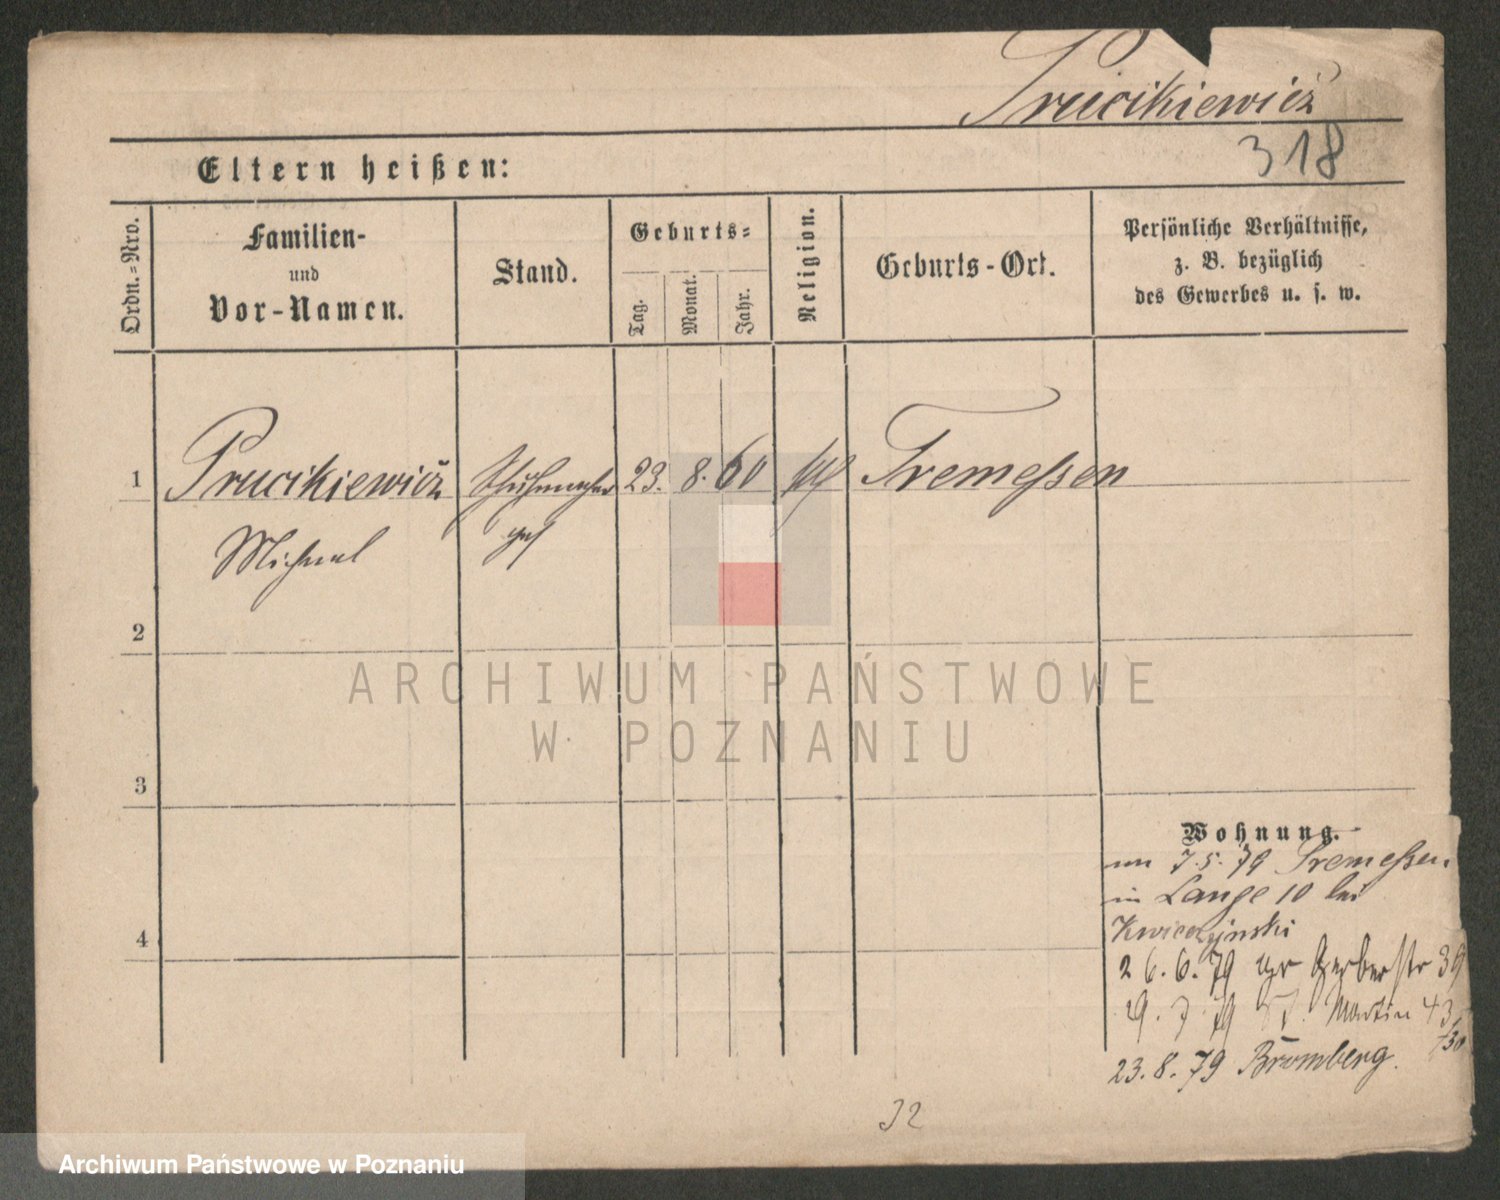 Prucikiewicz
318
Eltern heißen:
Ordn.-Nro.
Familien-
und
Vor-Namen.
Stand.
Geburts-
Tag.
Monat.
Jahr.
Religion.
Geburts-Ort.
Persönliche Verhältnisse,
z. B. bezüglich
des Gewerbes u. s. w.
1 Prucikiewicz Schuhmacher 23. 8. 60 kth Tremeßen
Michael ges
2
ARCHIWUM PAŃSTWOWE
W POZNANIU
3
Wohnung.
7.5.79 Tremeßen.
in Lange 10 bei
Kwieczynski
4
26.6.79 gr Gerberstr 39
19.7.79 St. Martin 43
23.8.79 Bromberg.
32
Archiwum Państwowe w Poznaniu